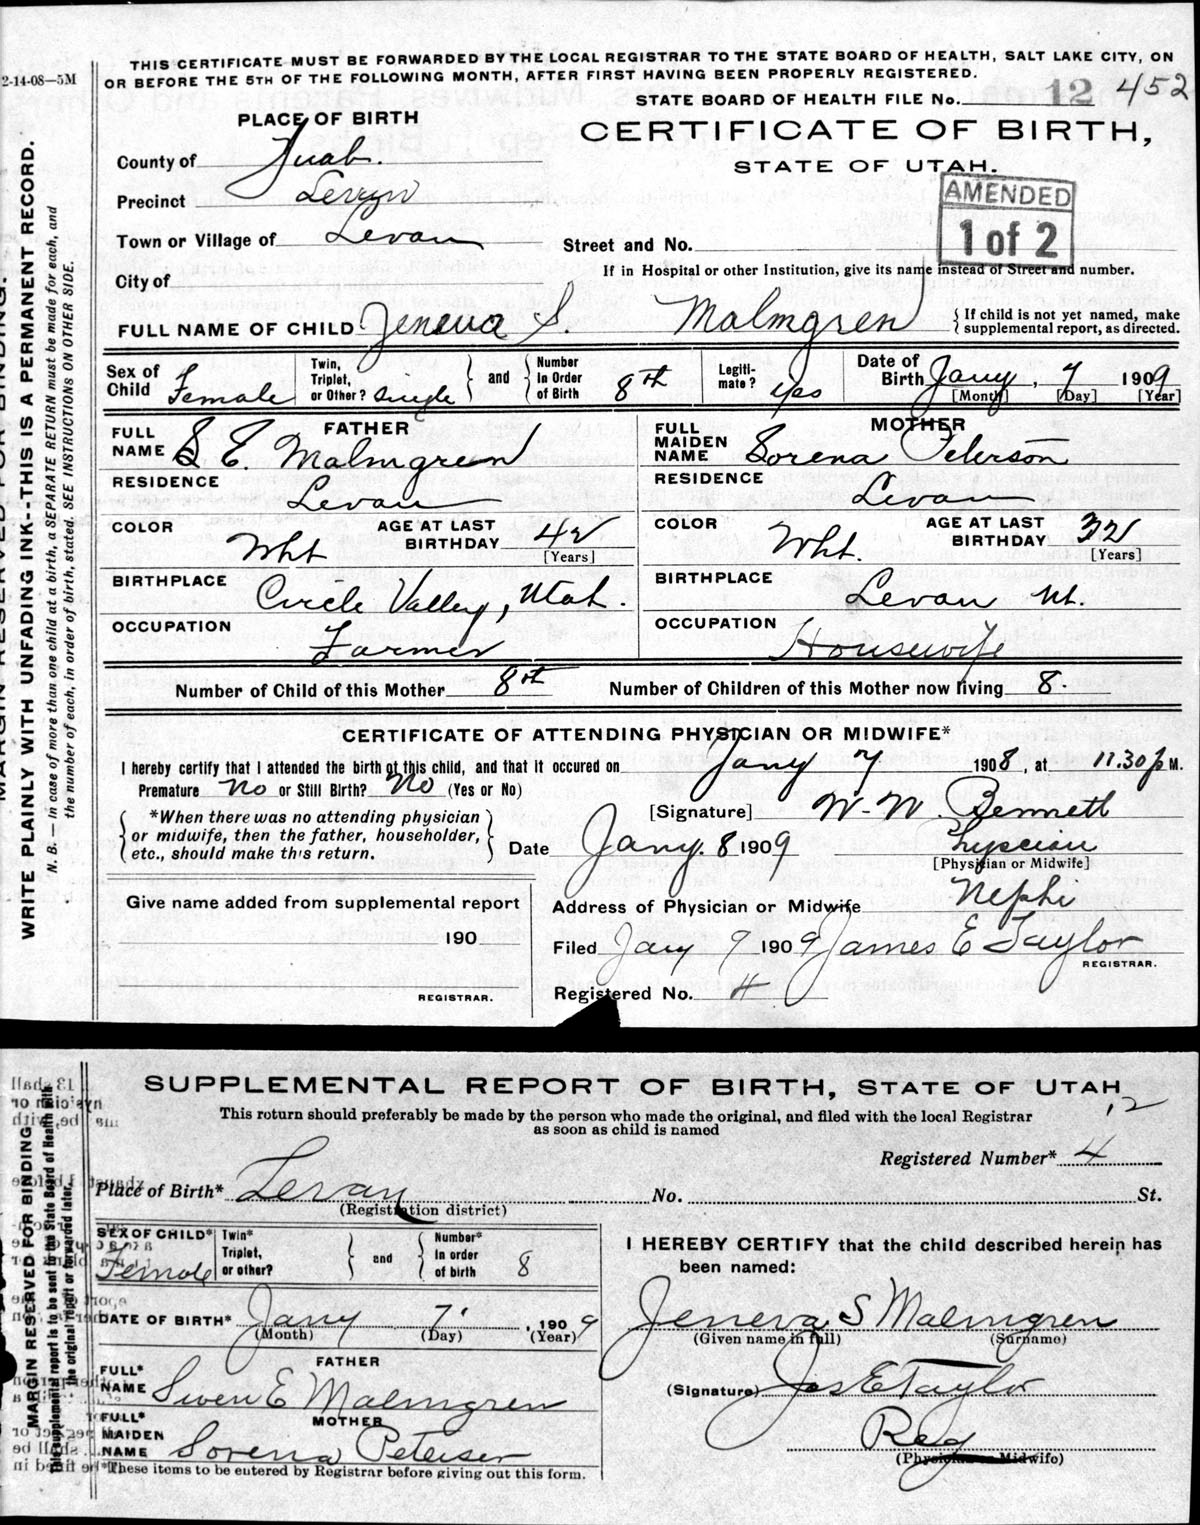 THIS CERTIFICATE MUST BE FORWARDED BY THE LOCAL REGISTRAR TO THE STATE BOARD OF HEALTH, SALT LAKE CITY, ON
2-14-08—5M OR BEFORE THE 5TH OF THE FOLLOWING MONTH, AFTER FIRST HAVING BEEN PROPERLY REGISTERED.
STATE BOARD OF HEALTH FILE No. 12 452
PLACE OF BIRTH
CERTIFICATE OF BIRTH,
STATE OF UTAH.
AMENDED
1 of 2
County of Juab.
Precinct Levan
Town or Village of Levan
Street and No.
If in Hospital or other Institution, give its name instead of Street and number.
City of
FULL NAME OF CHILD Jeneva S. Malmgren
{ If child is not yet named, make
supplemental report, as directed.
Sex of Child Female
Twin, Triplet, or Other? Single } and { Number In Order of Birth 8th
Legiti-mate? yes
Date of Birth Jany, 7 1909
[Month] [Day] [Year]
FATHER
FULL NAME S E. Malmgren
RESIDENCE Levan
COLOR Wht
AGE AT LAST BIRTHDAY 42
[Years]
BIRTHPLACE Circle Valley, Utah.
OCCUPATION Farmer
MOTHER
FULL MAIDEN NAME Sorena Peterson
RESIDENCE Levan
COLOR Wht.
AGE AT LAST BIRTHDAY 32
[Years]
BIRTHPLACE Levan Ut.
OCCUPATION Housewife
Number of Child of this Mother 8th Number of Children of this Mother now living 8.
CERTIFICATE OF ATTENDING PHYSICIAN OR MIDWIFE*
I hereby certify that I attended the birth of this child, and that it occured on Jany 7 1908, at 11.30 p M.
Premature No or Still Birth? No (Yes or No)
*When there was no attending physician
or midwife, then the father, householder,
etc., should make this return.
[Signature] W. W. Bennett
Date Jany. 8 1909
[Physician or Midwife]
Give name added from supplemental report
190
REGISTRAR.
Address of Physician or Midwife Nephi
Filed Jany 9 1909 James E Taylor
REGISTRAR.
Registered No. 4
MARGIN RESERVED FOR BINDING.
WRITE PLAINLY WITH UNFADING INK--THIS IS A PERMANENT RECORD.
N. B. — In case of more than one child at a birth, a SEPARATE RETURN must be made for each, and
the number of each, in order of birth, stated. SEE INSTRUCTIONS ON OTHER SIDE.
SUPPLEMENTAL REPORT OF BIRTH, STATE OF UTAH
This return should preferably be made by the person who made the original, and filed with the local Registrar
as soon as child is named
12
Registered Number* 4
Place of Birth* Levan No. St.
(Registration district)
SEX OF CHILD* Female
Twin* Triplet, or other? } and { Number* In order of birth 8
DATE OF BIRTH* Jany 7. , 1909
(Month) (Day) (Year)
FATHER
FULL* NAME Swen E Malmgren
MOTHER
FULL* MAIDEN NAME Sorena Petersen
*These items to be entered by Registrar before giving out this form.
I HEREBY CERTIFY that the child described herein has
been named:
Jeneva S Malmgren
(Given name in full) (Surname)
(Signature) Jas E Taylor
Reg
(Physician or Midwife)
MARGIN RESERVED FOR BINDING
This supplemental report is to be sent to the State Board of Health with
the original report or forwarded later.